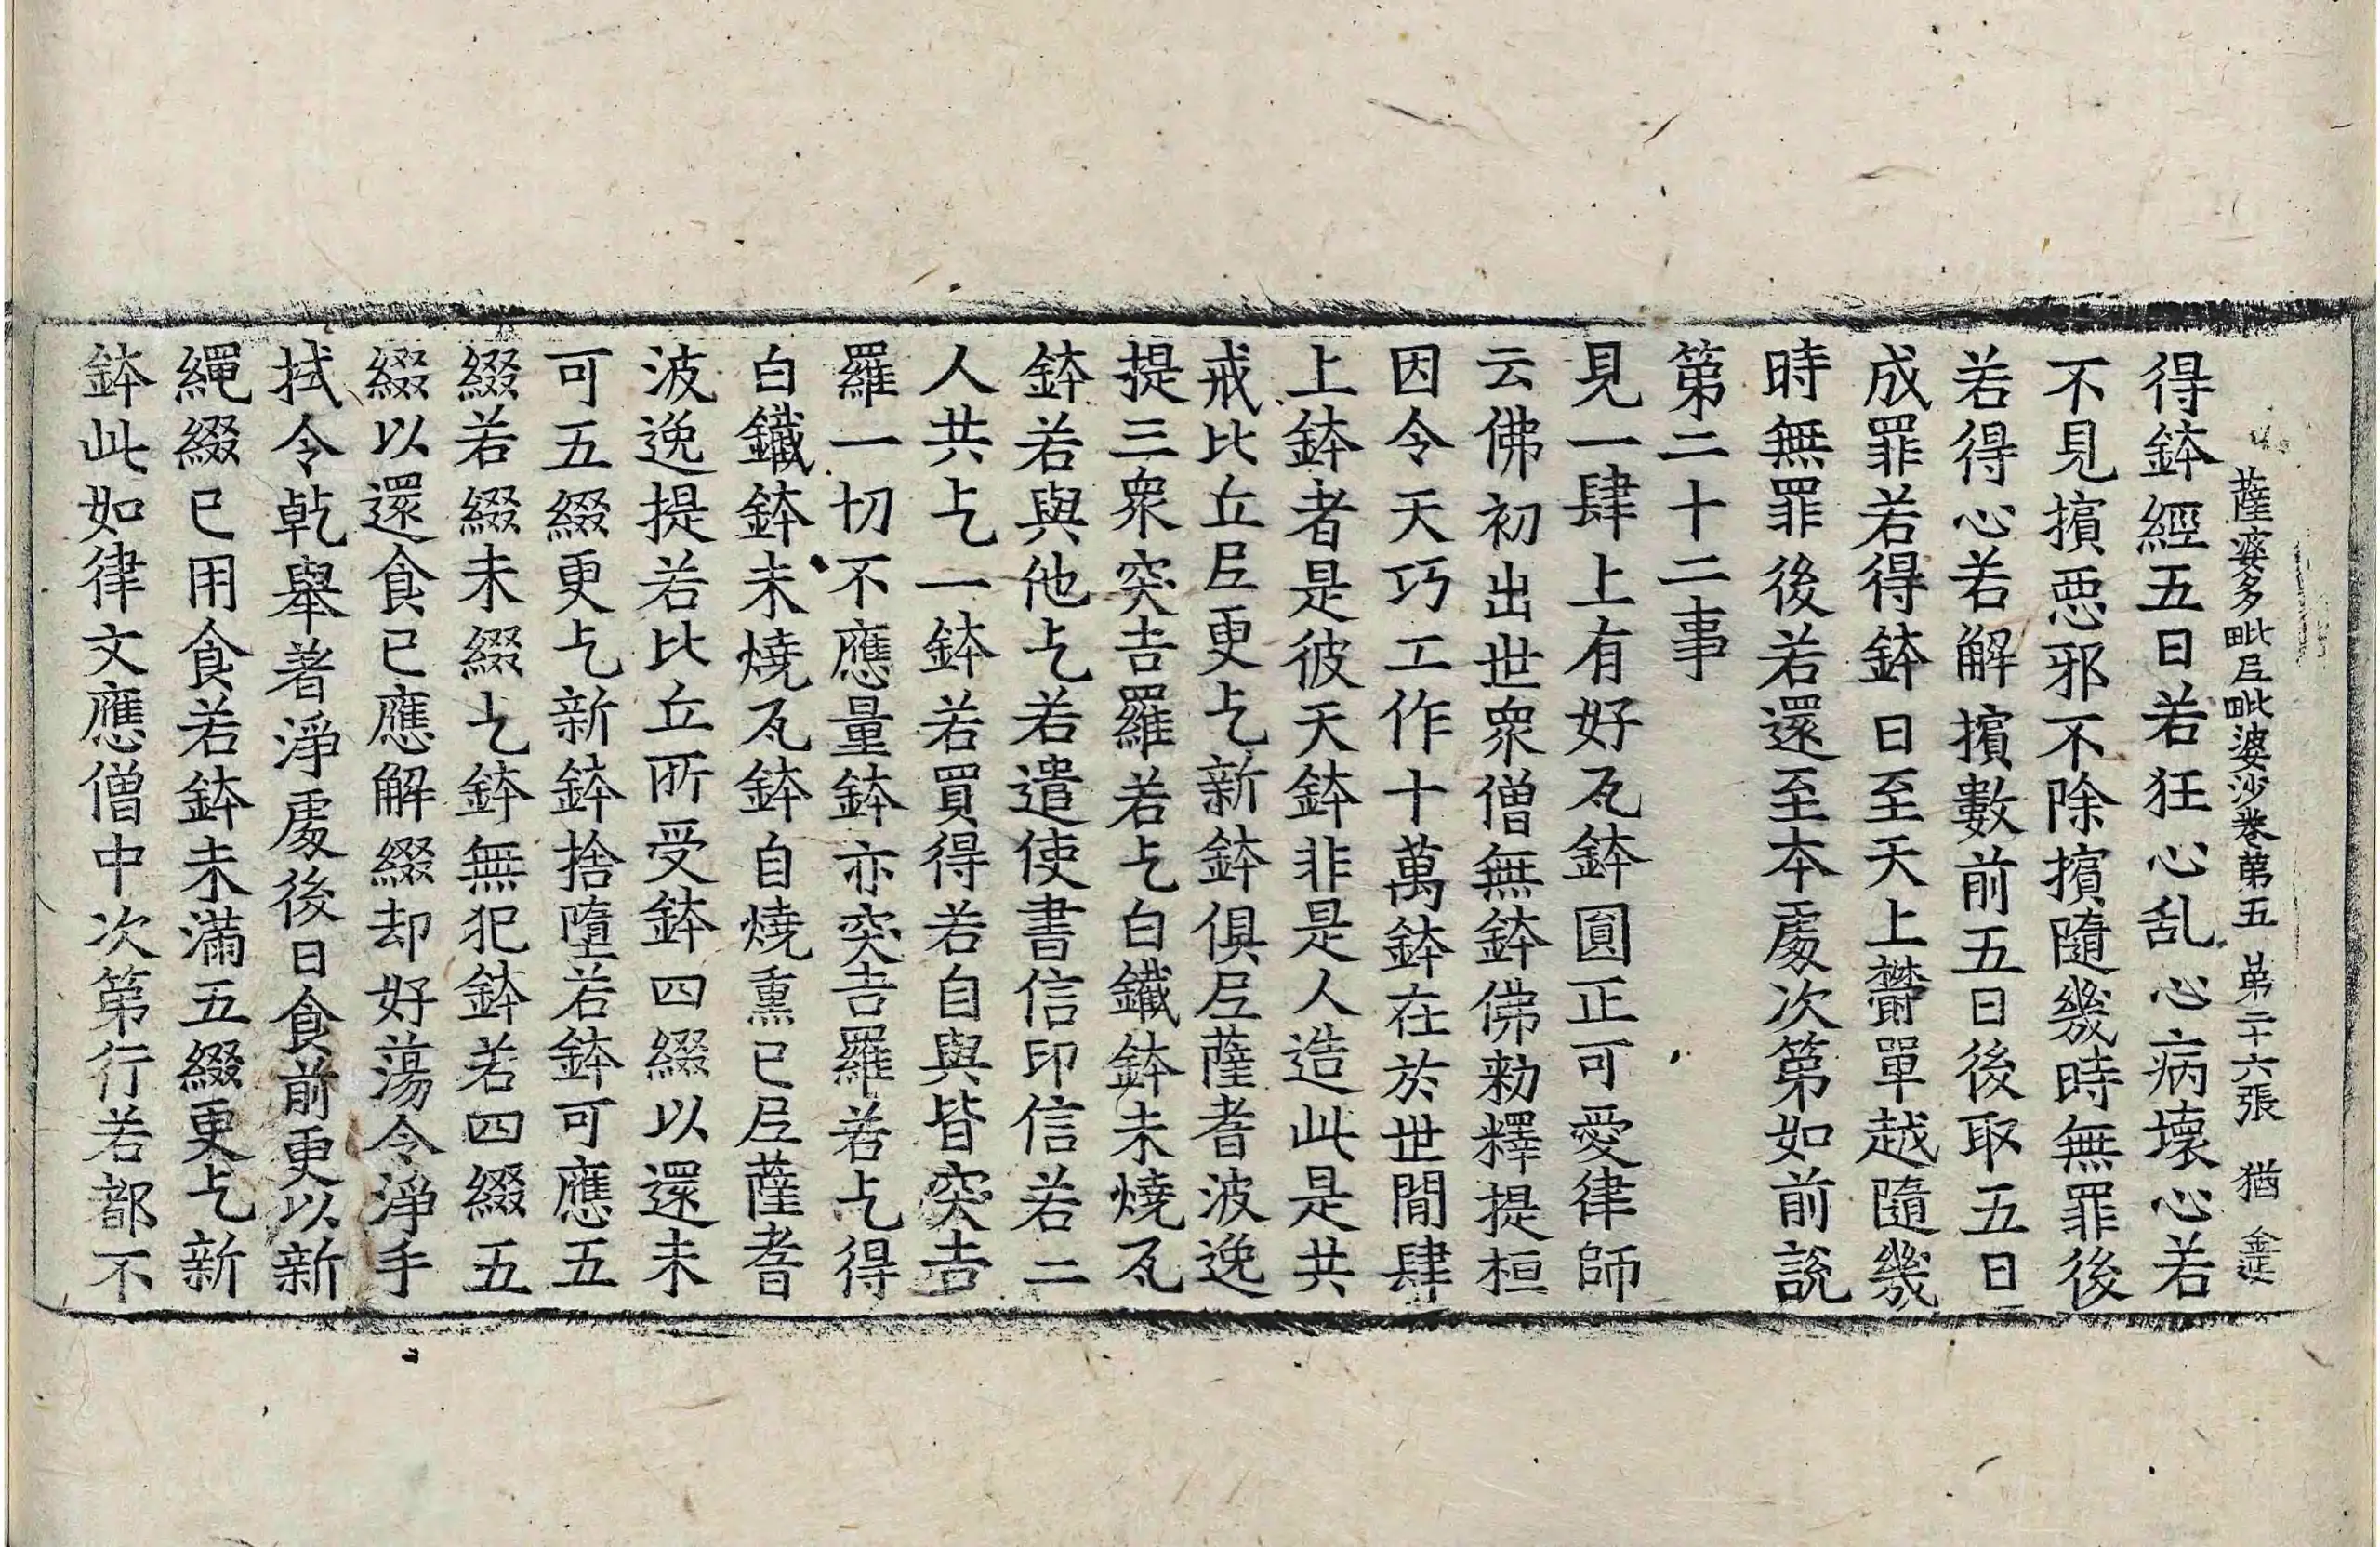 薩婆多毗尼毗婆沙卷第五 第二十六張 猶
得鉢經五日若狂心乱心病壞心若
不見擯惡邪不除擯隨幾時無罪後
若得心若解擯數前五日後取五日
成罪若得鉢日至天上欝單越隨幾
時無罪後若還至本處次第如前說
第二十二事
見一肆上有好瓦鉢圓正可愛律師
云佛初出世衆僧無鉢佛勑釋提桓
因令天巧工作十萬鉢在於世間肆
上鉢者是彼天鉢非是人造此是共
戒比丘尼更乞新鉢俱尼薩耆波逸
提三衆突吉羅若乞白鐵鉢未燒瓦
鉢若與他乞若遣使書信印信若二
人共乞一鉢若買得若自與皆突吉
羅一切不應量鉢亦突吉羅若乞得
白鐵鉢未燒瓦鉢自燒熏已尼薩耆
波逸提若比丘所受鉢四綴以還未
可五綴更乞新鉢捨墮若鉢可應五
綴若綴未綴乞鉢無犯鉢若四綴五
綴以還食已應解綴却好蕩令淨手
拭令乾舉著淨處後日食前更以新
繩綴已用食若鉢未滿五綴更乞新
鉢此如律文應僧中次第行若都不